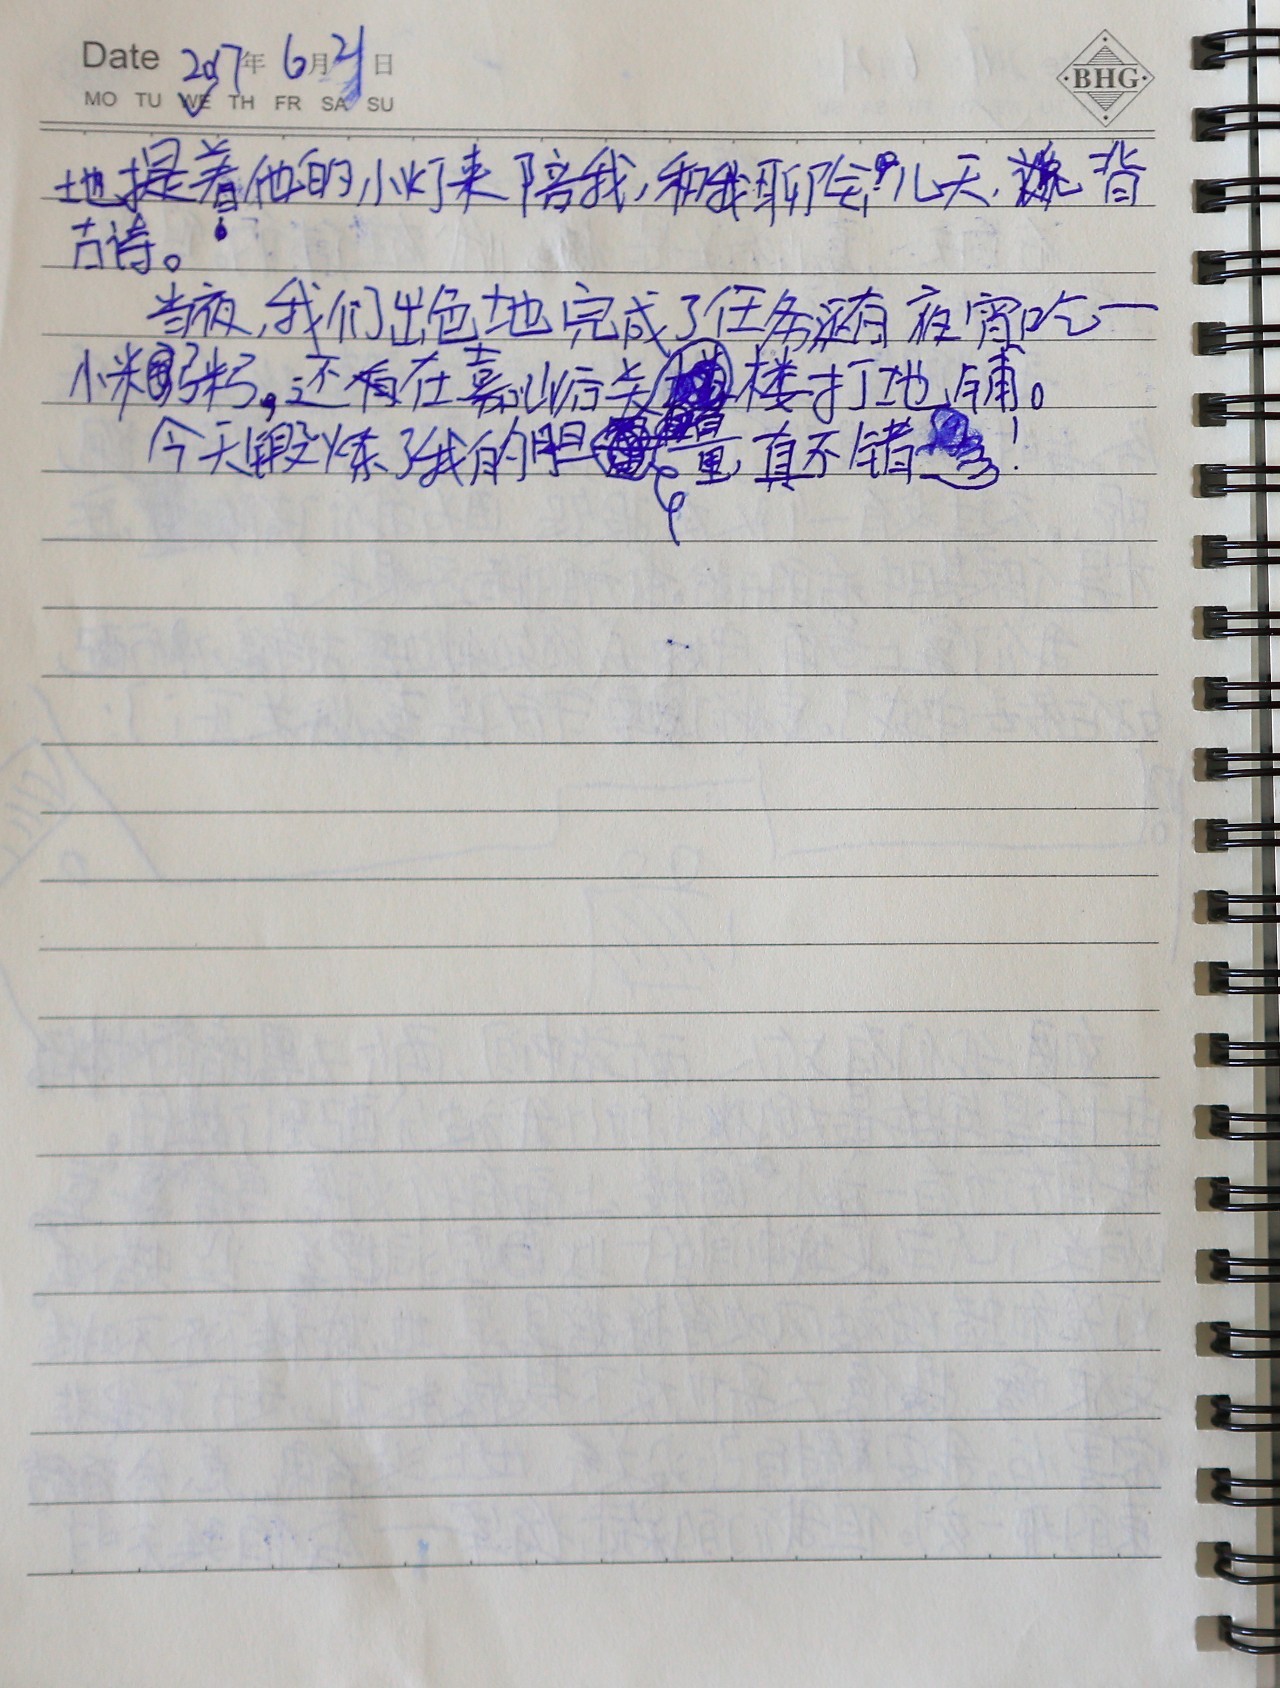 Date 2017年6月21日
BHG
MO TU WE TH FR SA SU
地提着他的小灯来陪我，和我聊会儿天，背
古诗。
当夜，我们出色地完成了任务，还有夜宵吃一
小米粥。还有在嘉峪关楼打地铺。
今天锻炼了我的胆量，真不错！